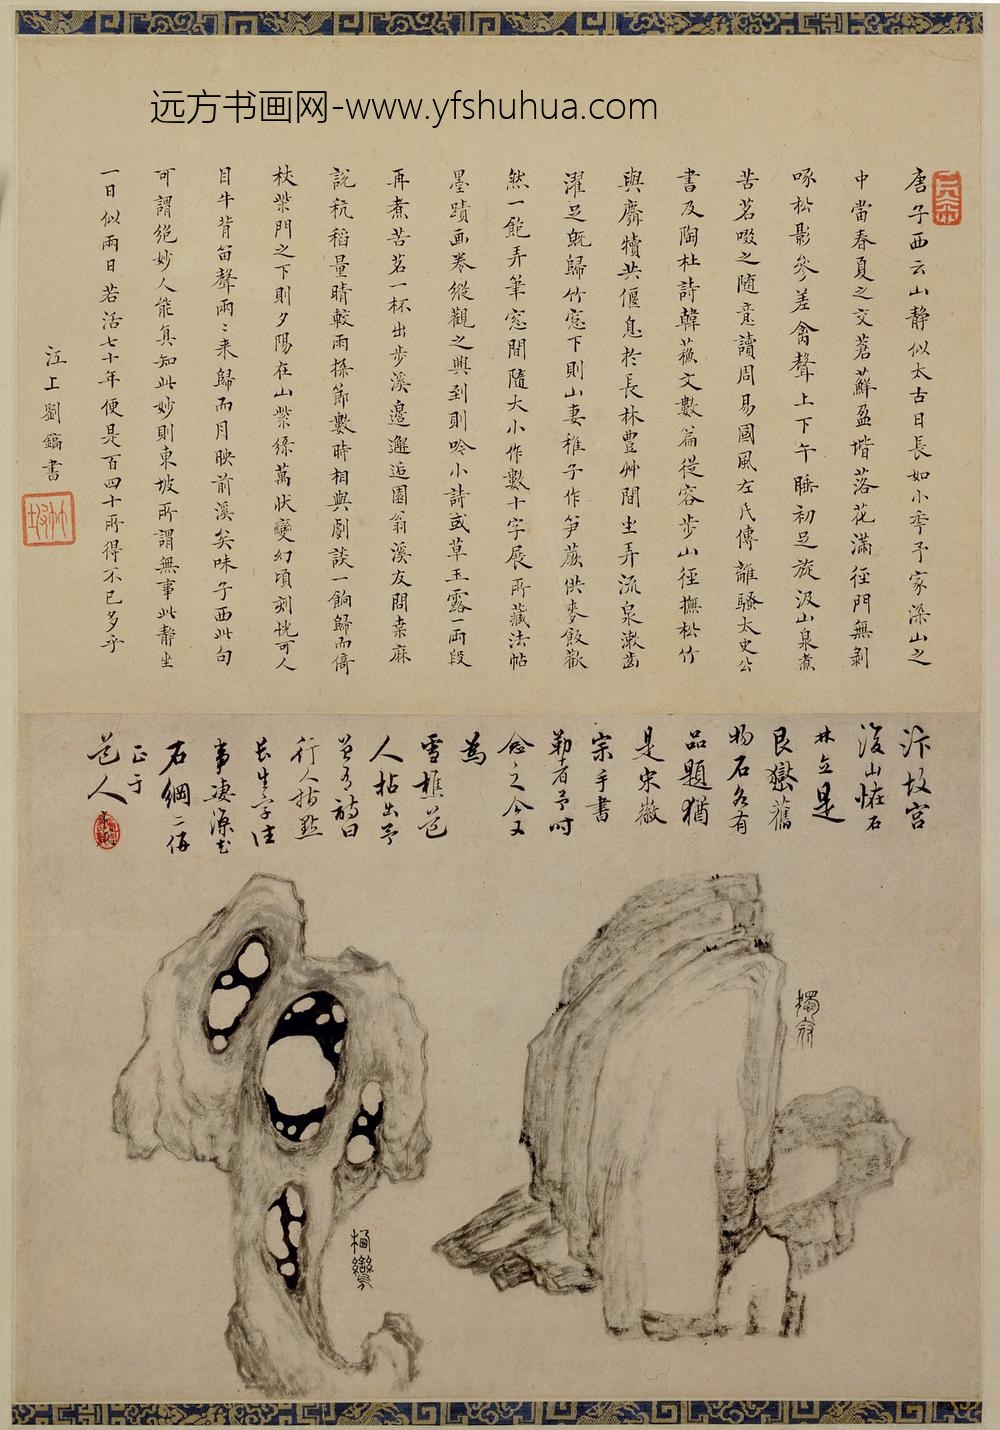 远方书画网-www.yfshuhua.com
唐子西云山静似太古日長如小秊予家深山之
中當春夏之交蒼蘚盈堦落花滿徑門無剝
啄松影參差禽聲上下午睡初足旋汲山泉煮
苦茗啜之随意讀周易國風左氏傳離騷太史公
書及陶杜詩韓蘓文數篇從容步山徑撫松竹
與麛犢共偃息於長林豊艸間坐弄流泉漱齒
濯足既歸竹窓下則山妻稚子作笋蕨供麥飯歡
然一飽弄筆窓間隨大小作數十字展所藏法帖
墨蹟画卷縱觀之興到則吟小詩或草玉露一兩段
再煮苦茗一杯出步溪邊邂逅園翁溪友問桒麻
説秔稻量晴較雨探節數時相與劇談一餉歸而倚
杖柴門之下則夕陽在山紫綠萬状變幻頃刻恍可人
目牛背笛聲兩〻来歸而月映前溪矣味子西此句
可謂絕妙人能真知此妙則東坡所謂無事此静坐
一日似兩日若活七十年便是百四十所得不已多乎
江上劉鎬書
汴故宮
後山恠石
林立是
艮嶽舊
物石各有
品題猶
是宋徽
宗手書
勒者予時
念之今又
為
雪樵芑
人拈出予
曾有詩曰
行人指點
長生字往
事凄涼花
石綱二併
正于
芑人
獨秀